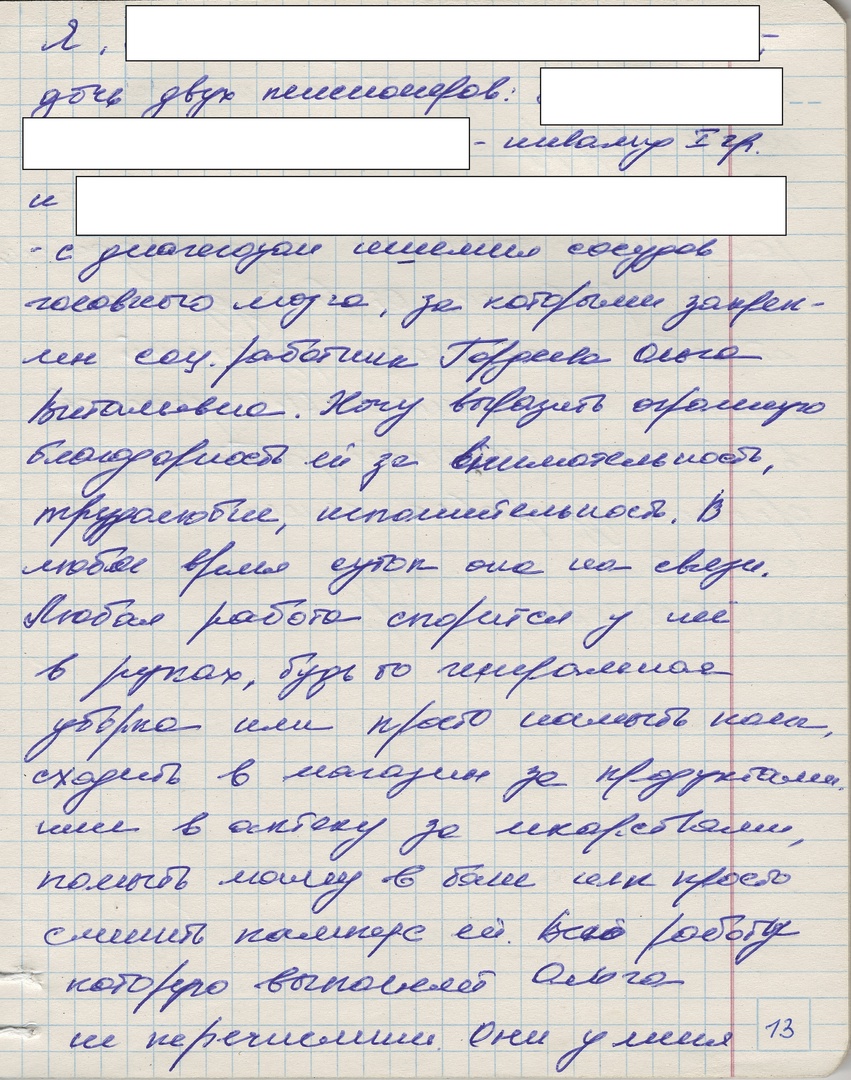 Я,
дочь двух пенсионеров:
- инвалид I гр.
и
- с диагнозом ишемия сосудов
головного мозга, за которыми закреп-
лён соц. работник Гордеева Ольга
Витальевна. Хочу выразить огромную
благодарность ей за внимательность,
трудолюбие, исполнительность. В
любое время суток она на связи.
Любая работа спорится у неё
в руках, будь то генеральная
уборка или просто намыть пол,
сходить в магазин за продуктами
или в аптеку за лекарствами,
помыть маму в бане или просто
сменить памперс ей. Всю работу
которую выполняет Ольга
не перечислишь. Они у меня
13